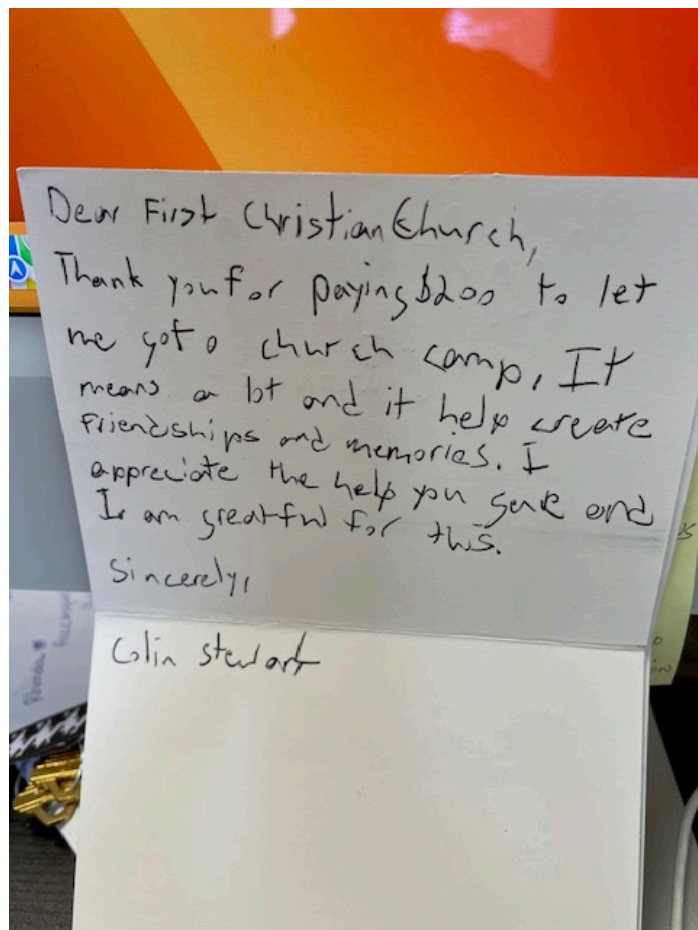 Dear First Christian Church,
Thank you for paying $200 to let
me got o church camp, It
means a lot and it help create
friendships and memories. I
appreciate the help you gave and
I am greatful for this.
Sincerely,
Colin Stewart